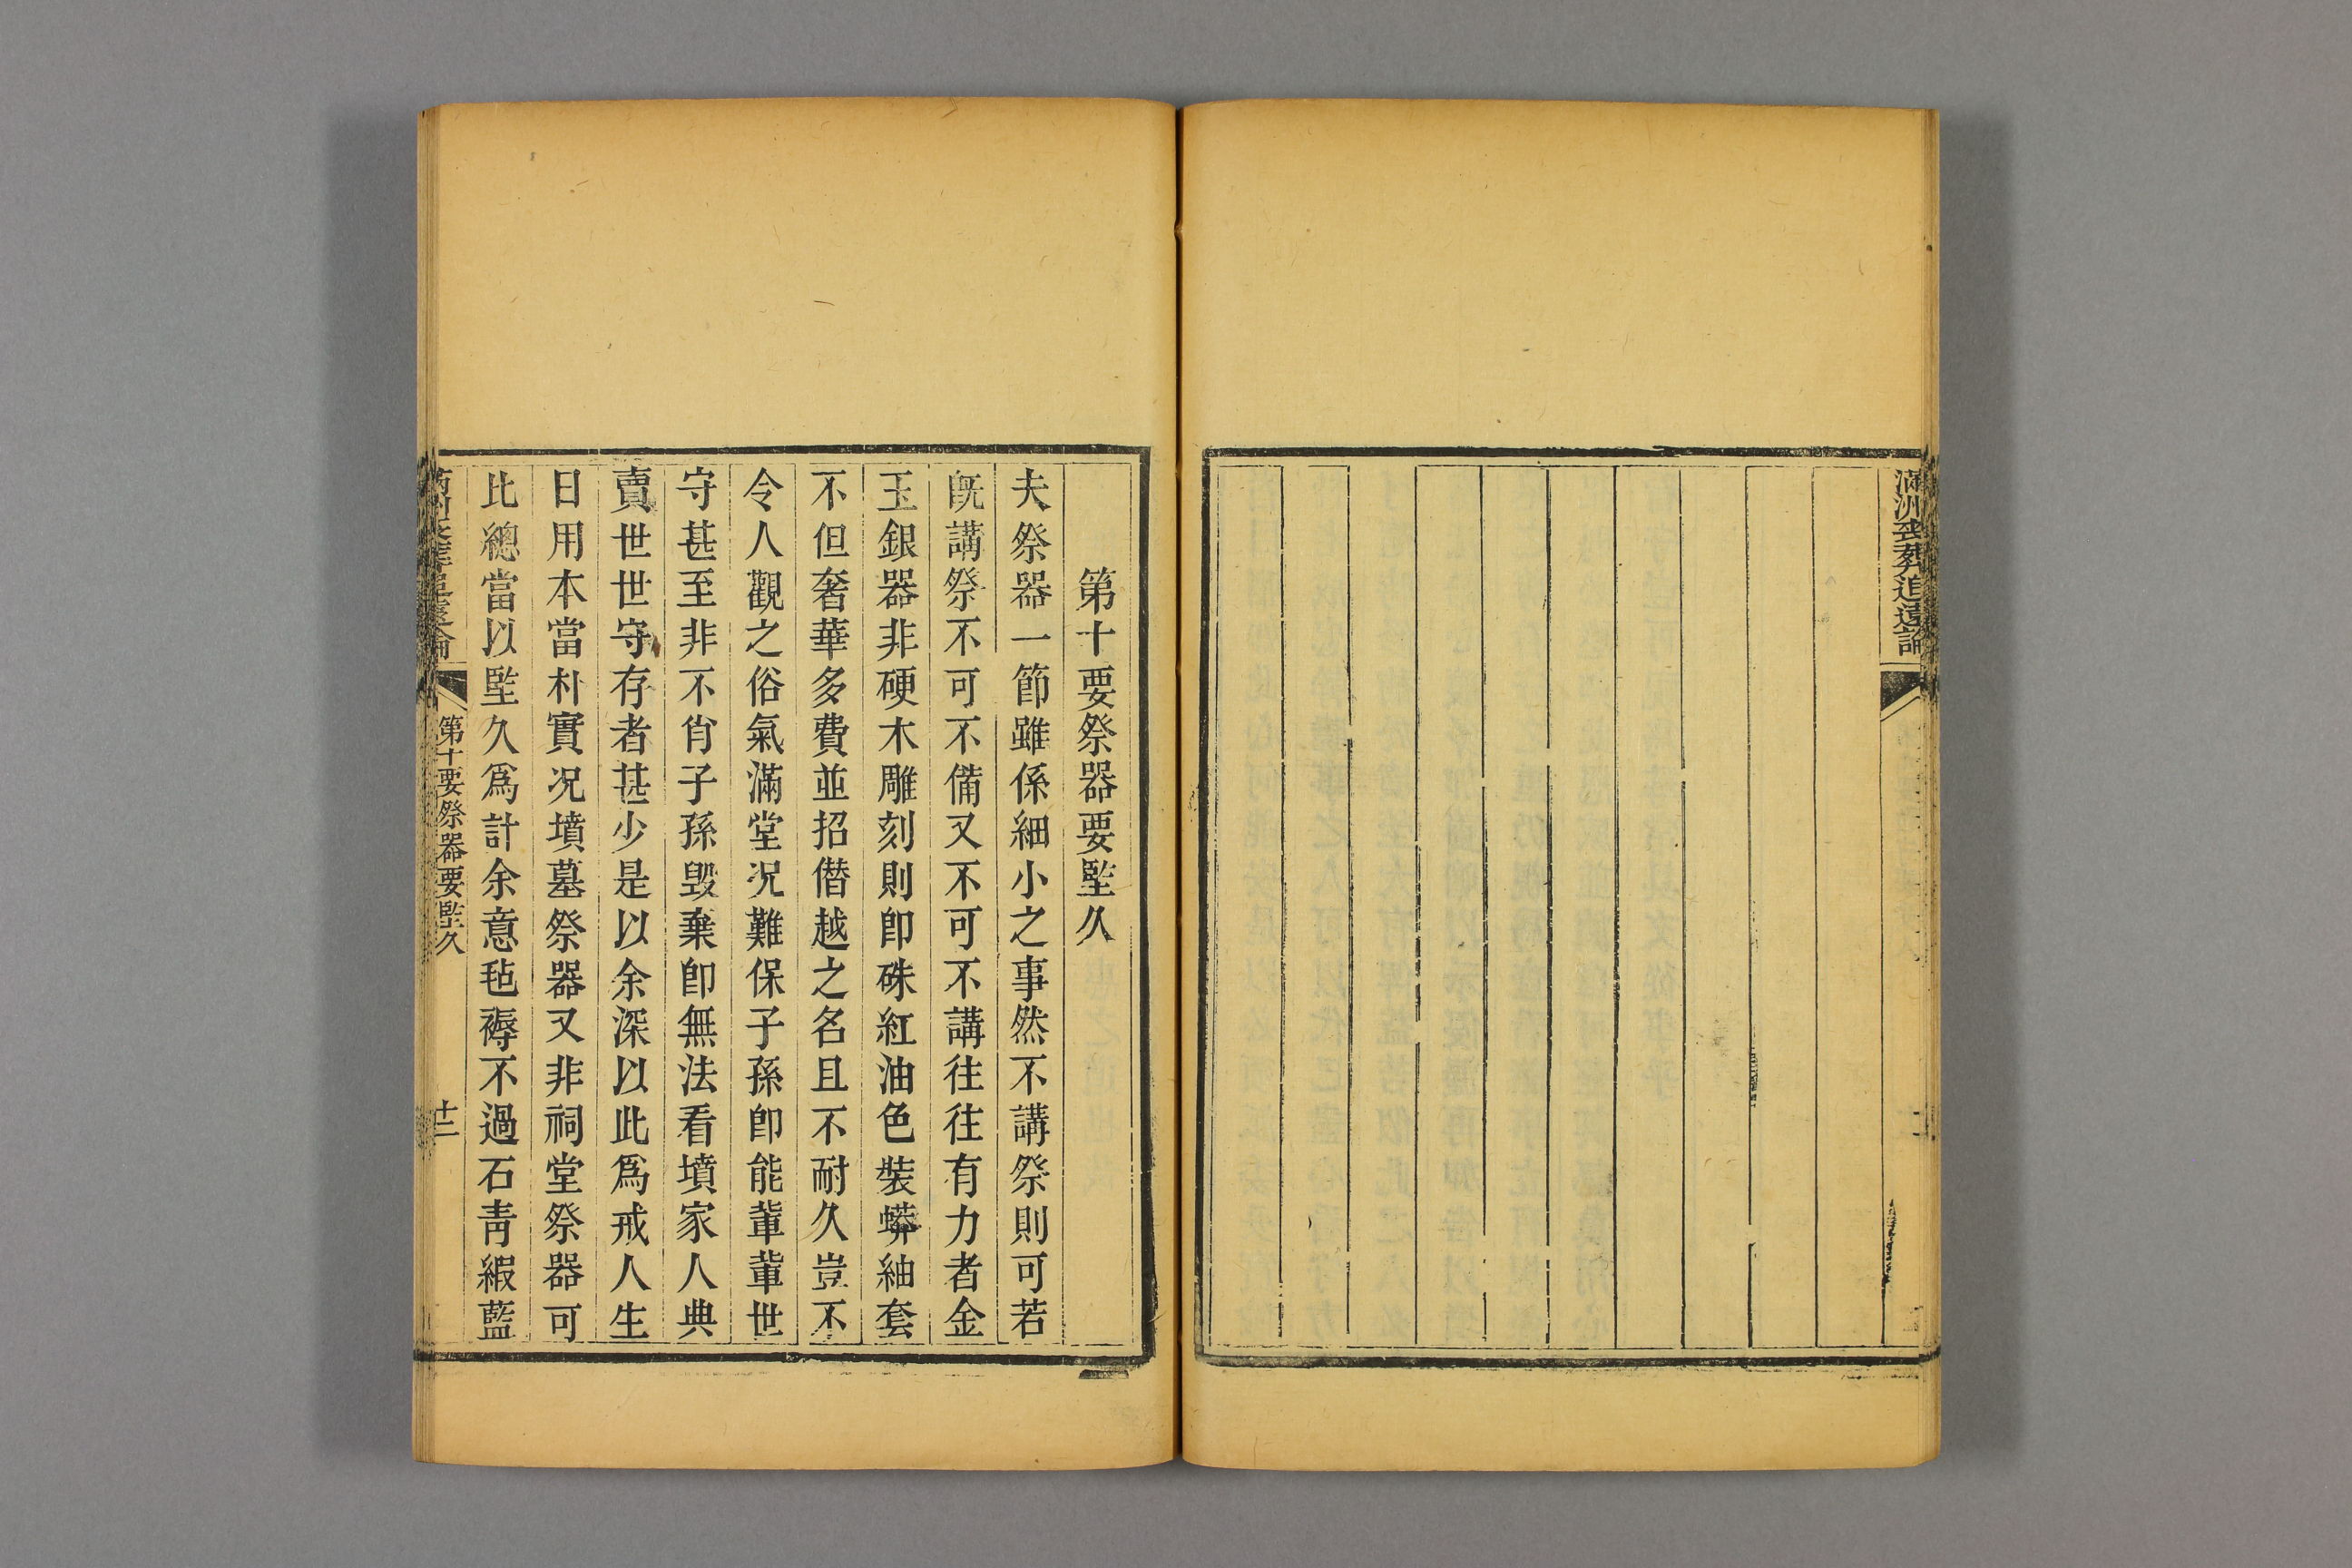 滿洲喪葬追遠論
第十要祭器要堅久
夫祭器一節雖係細小之事然不講祭則可若
旣講祭不可不備又不可不講往往有力者金
玉銀器非硬木雕刻則卽硃紅油色裝蟒紬套
不但奢華多費並招僭越之名且不耐久豈不
令人觀之俗氣滿堂况難保子孫卽能輩輩世
守甚至非不肖子孫毁棄卽無法看墳家人典
賣世世守存者甚少是以余深以此爲戒人生
日用本當朴實况墳墓祭器又非祠堂祭器可
比總當以堅久爲計余意毡褥不過石靑緞藍
第十要祭器要堅久
十二